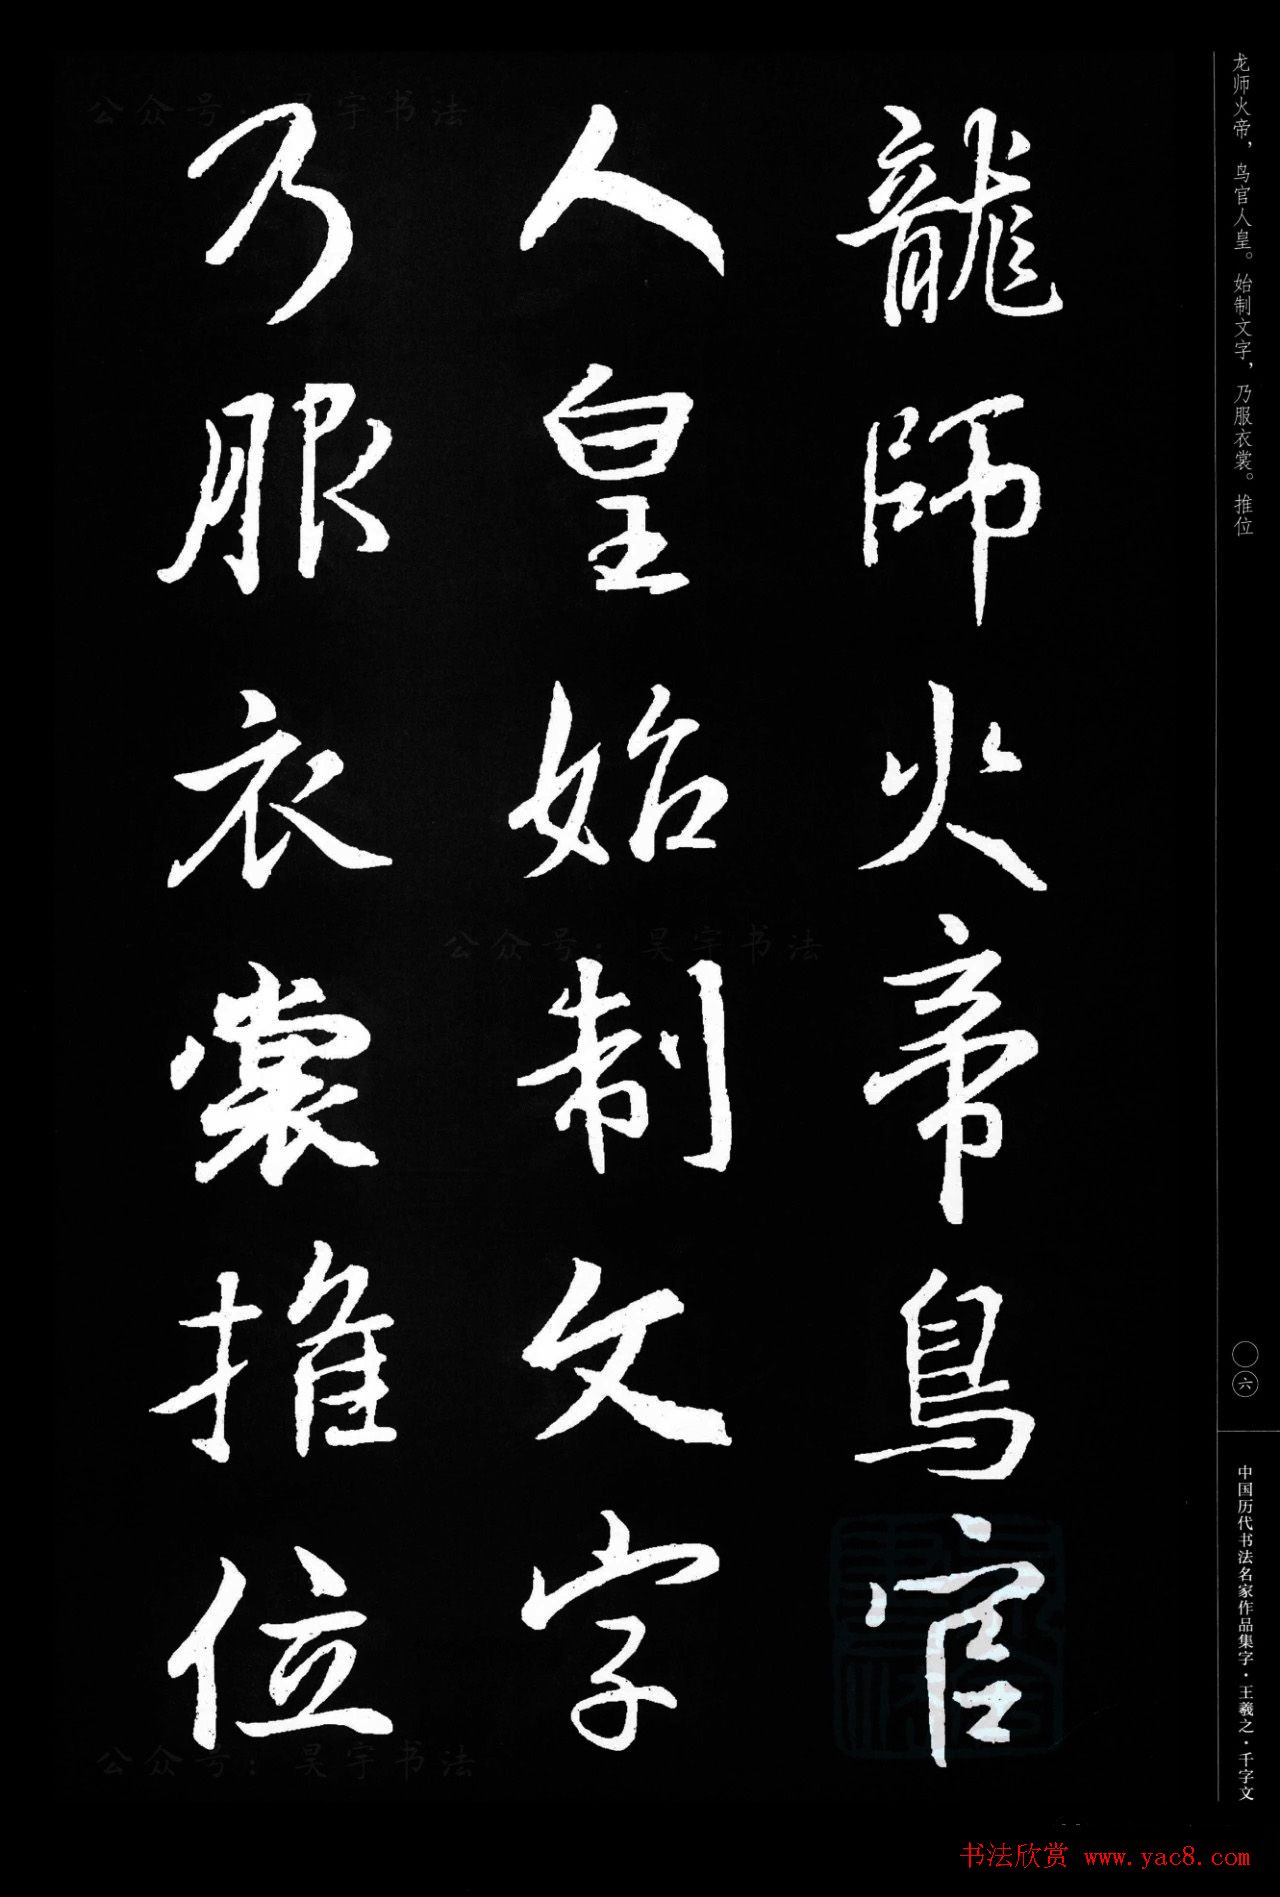 龙师火帝，鸟官人皇。始制文字，乃服衣裳。推位
龍師火帝鳥官
人皇始制文字
乃服衣裳推位
〇六
中国历代书法名家作品集字·王羲之·千字文
公众号：昊宇书法
公众号：昊宇书法
公众号：昊宇书法
书法欣赏 www.yac8.com